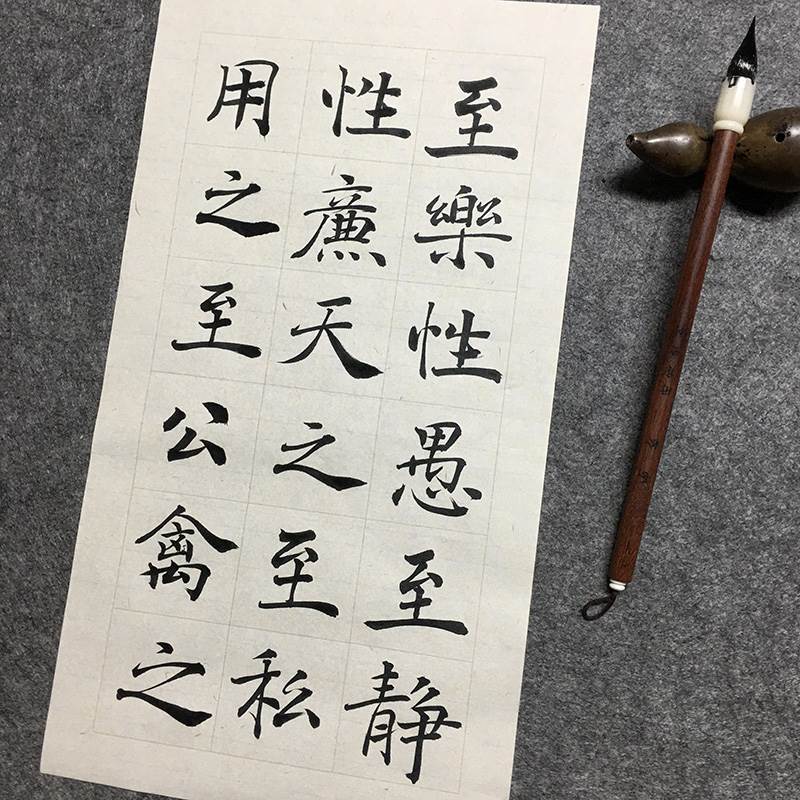 至樂性愚至静
性廉天之至私
用之至公禽之